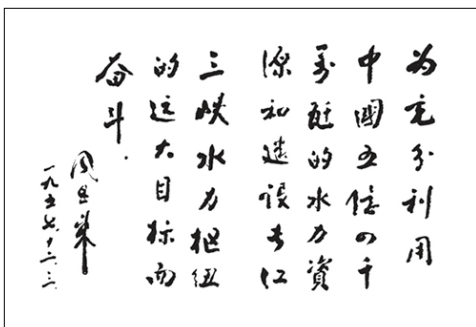 为充分利用
中國五億四千
萬瓩的水力資
源和建设长江
三峡水力枢纽
的远大目标而
奋斗.
周恩来
一九五七、十二、三、